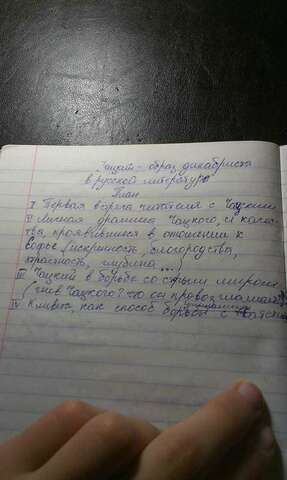 Чацкий - образ декабриста
в русской литературе
План
I Первая встреча читателя с Чацким
II Личная драма Чацкого, и качес-
тва, проявившиеся в отношении к
Софье (искренность, благородства,
страстность, глубина...)
III Чацкий в борьбе со старым миром
(гнев Чацкого? то он провозглашает
IV Клевета, как способ борьбы с